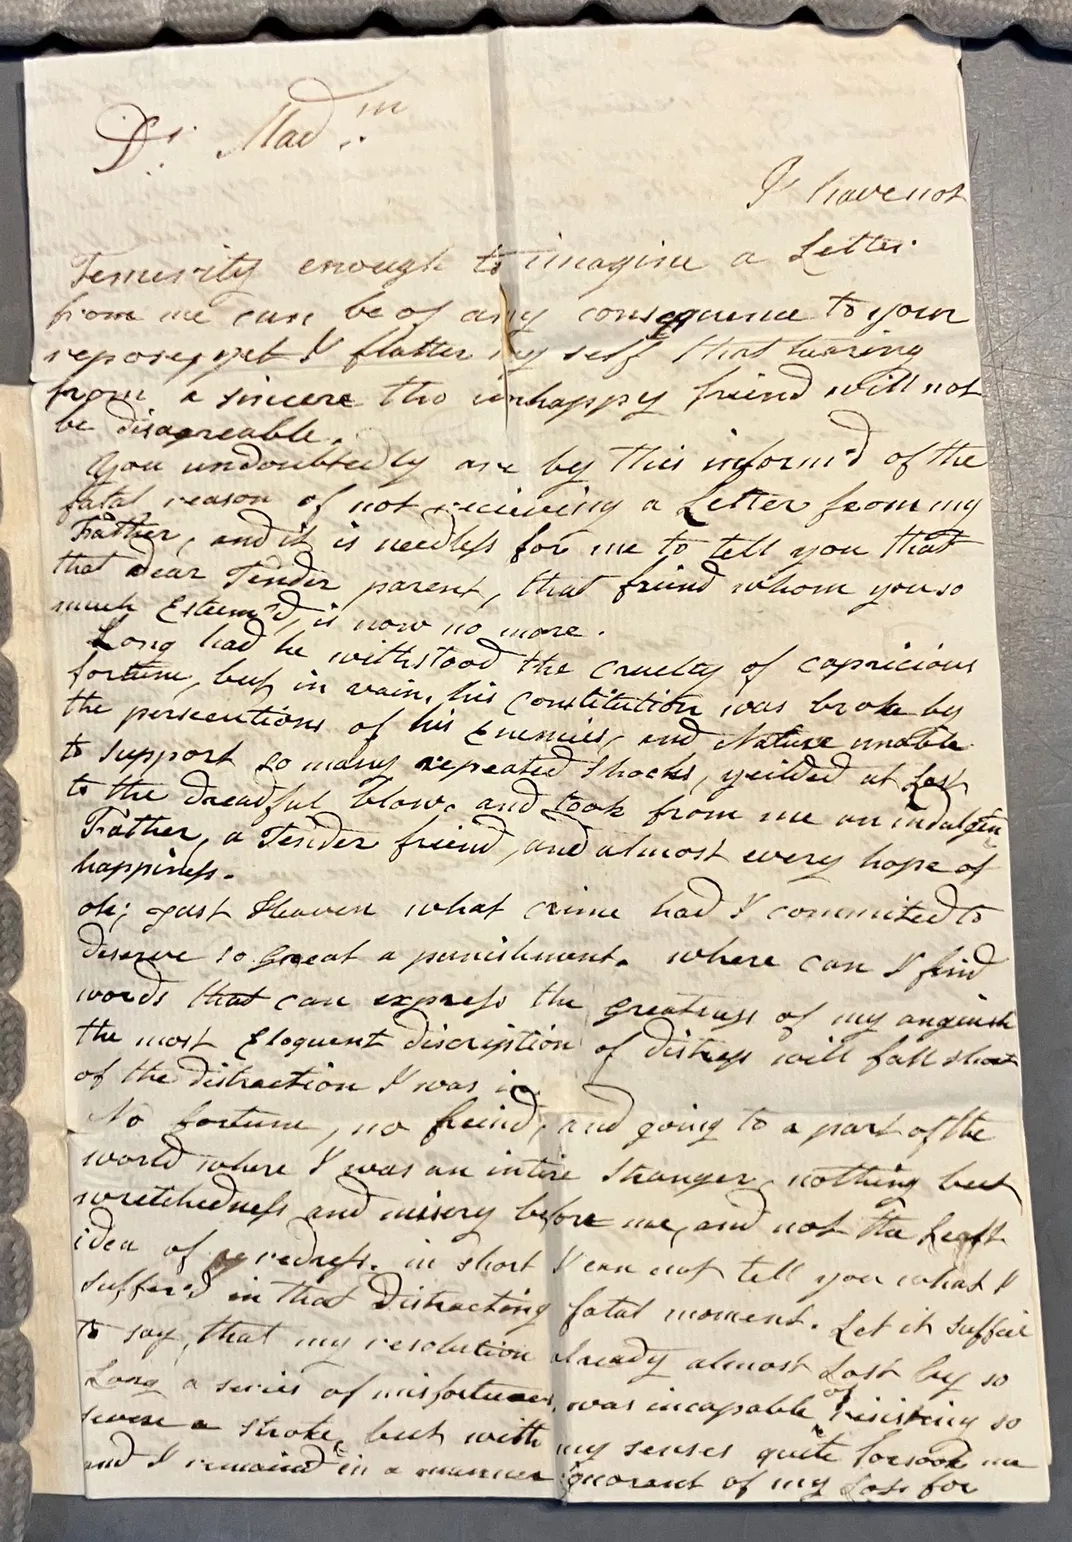 Dr. Mad.m
I have not
Temerity enough to imagine a Letter
from me can be of any consequence to your
repose, yet I flatter my self that hearing
from a sincere tho unhappy friend will not
be disagreable.
You undoubtedly are by this inform'd of the
fatal reason of not recieving a Letter from my
Father, and it is needless for me to tell you that
that dear Tender parent, that friend whom you so
much Esteem'd, is now no more.
Long had he withstood the cruelty of capricious
fortune, but in vain, his Constitution was broke by
the persecutions of his Enemies, and Nature unable
to support so many repeated Shocks, yeilded at Last
to the dreadful blow. and took from me an indulgen
Father, a Tender friend, and almost every hope of
happiness.
oh; just Heaven what crime had I commited to
deserve so great a punishment. where can I find
words that can express the greatness of my anguish
the most Eloquent discription of distress will fall short
of the distraction I was in
No fortune, no freind, and going to a part of the
world where I was an intire Stranger, nothing but
wretchedness and misery before me, and not the Least
idea of redress. in short I can not tell you what I
suffer'd in that distracting fatal moment. Let it suffice
to say, that my resolution already almost Lost by so
Long a series of misfortunes, was incapable of resisting so
severe a stroke, but with my senses quite forsook me
and I remain'd in a manner ignorant of my Loss for